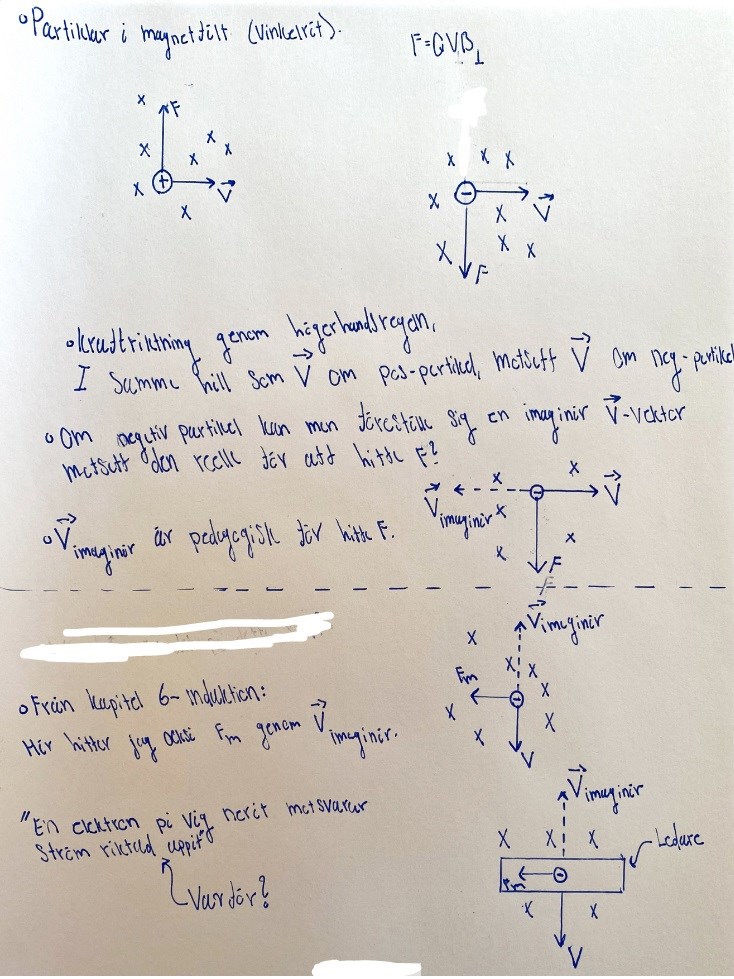 • Partiklar i magnetfält (vinkelrät).
F=QVB⊥
x F
x x x x
x + V⃗
x
x x x
x − V⃗
x
x x x
F
• kraftriktning genom högerhandsregeln,
I samma håll som V⃗ om pos-partikel, motsatt V⃗ om neg-partikel
• Om negativ partikel kan man föreställa sig en imaginär V⃗-vektor
motsatt den reella för att hitta F?
x x
V⃗imaginär − V⃗
x
x x
F
F
• V⃗imaginär är pedagogisk för hitta F.
V⃗imaginär
x
x x
Fm − x
x x
x
V
• Från kapitel 6- induktion:
Här hittar jag också Fm genom V⃗imaginär.
V⃗imaginär
"En elektron på väg neråt motsvarar
ström riktad uppåt"
x x x Ledare
Fm −
x x
V
Varför?